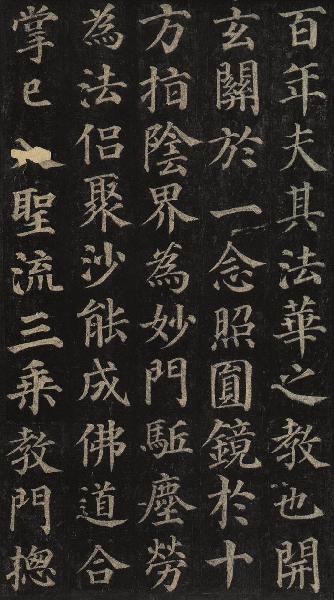 百年夫其法華之教也開
玄關於一念照圓鏡於十
方指陰界為妙門駈塵勞
為法侣聚沙能成佛道合
掌已入聖流三乘教門揔